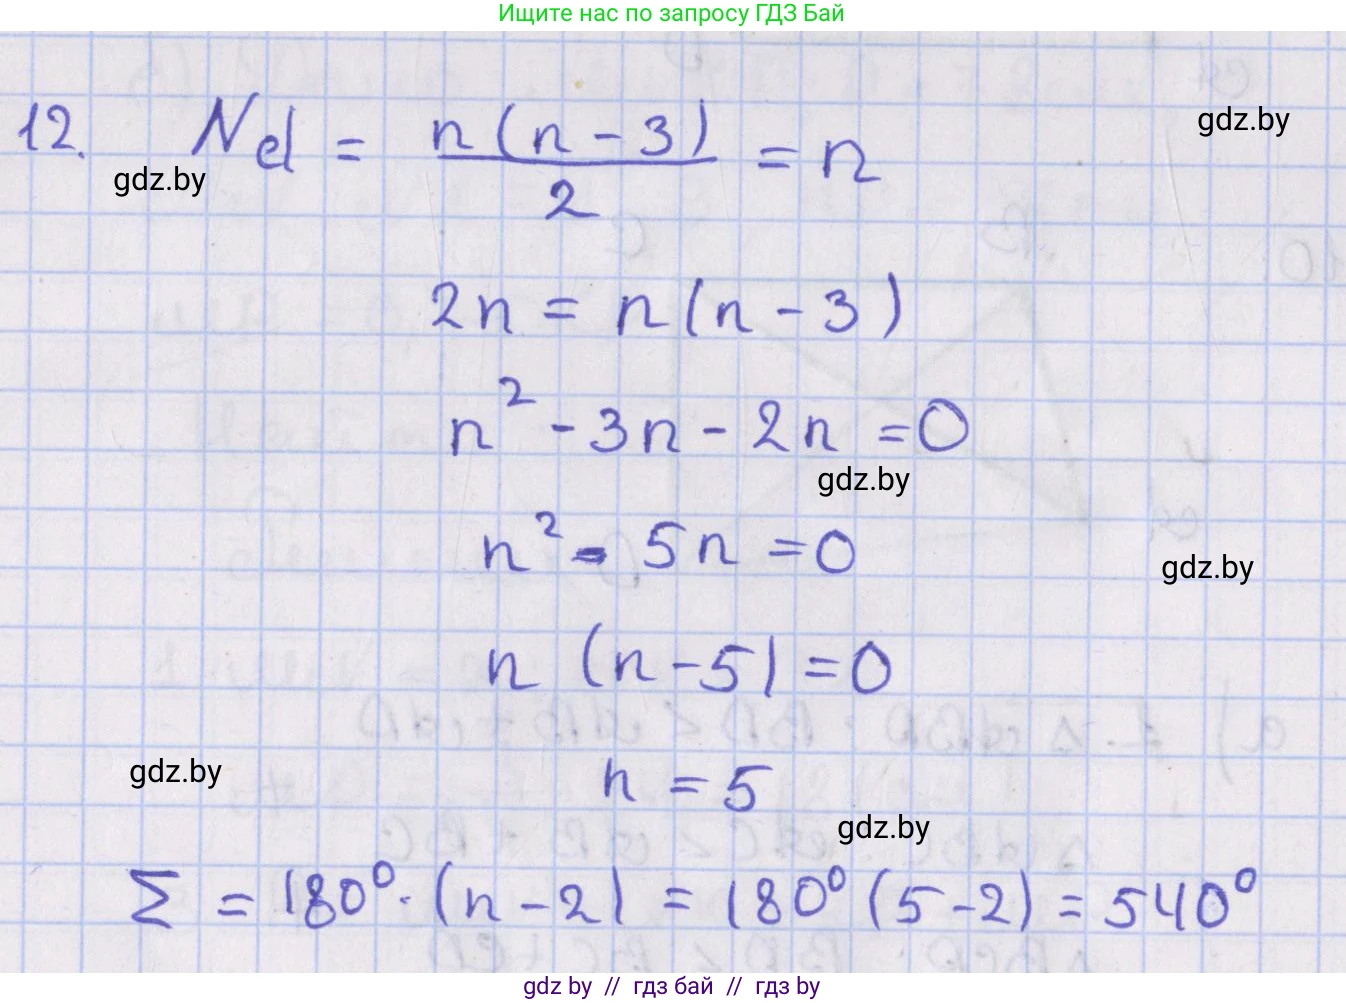 Ищите нас по запросу ГДЗ Бай
gdz.by
12. Nd = n(n-3)/2 = n
gdz.by
2n = n(n-3)
n² - 3n - 2n = 0
gdz.by
n² - 5n = 0
gdz.by
n (n-5) = 0
gdz.by
n = 5
gdz.by
Σ = 180⁰·(n-2) = 180⁰(5-2) = 540⁰
gdz by // гдз бай // гдз by